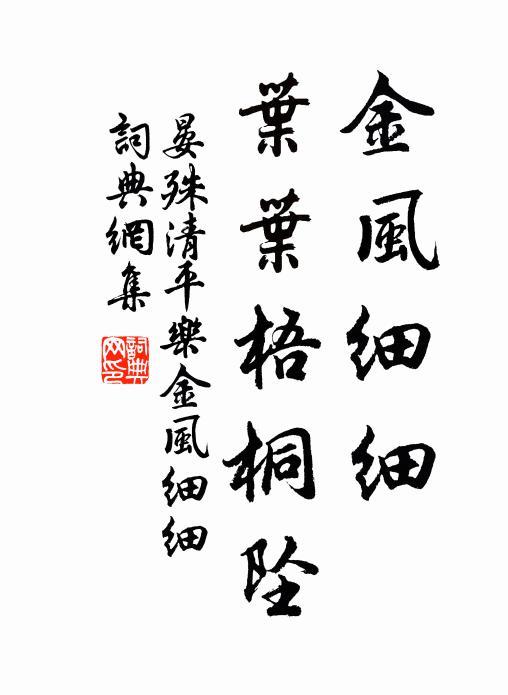 金風細細
葉葉梧桐墜
晏殊清平樂金風細細
詞典網集
詞典網印